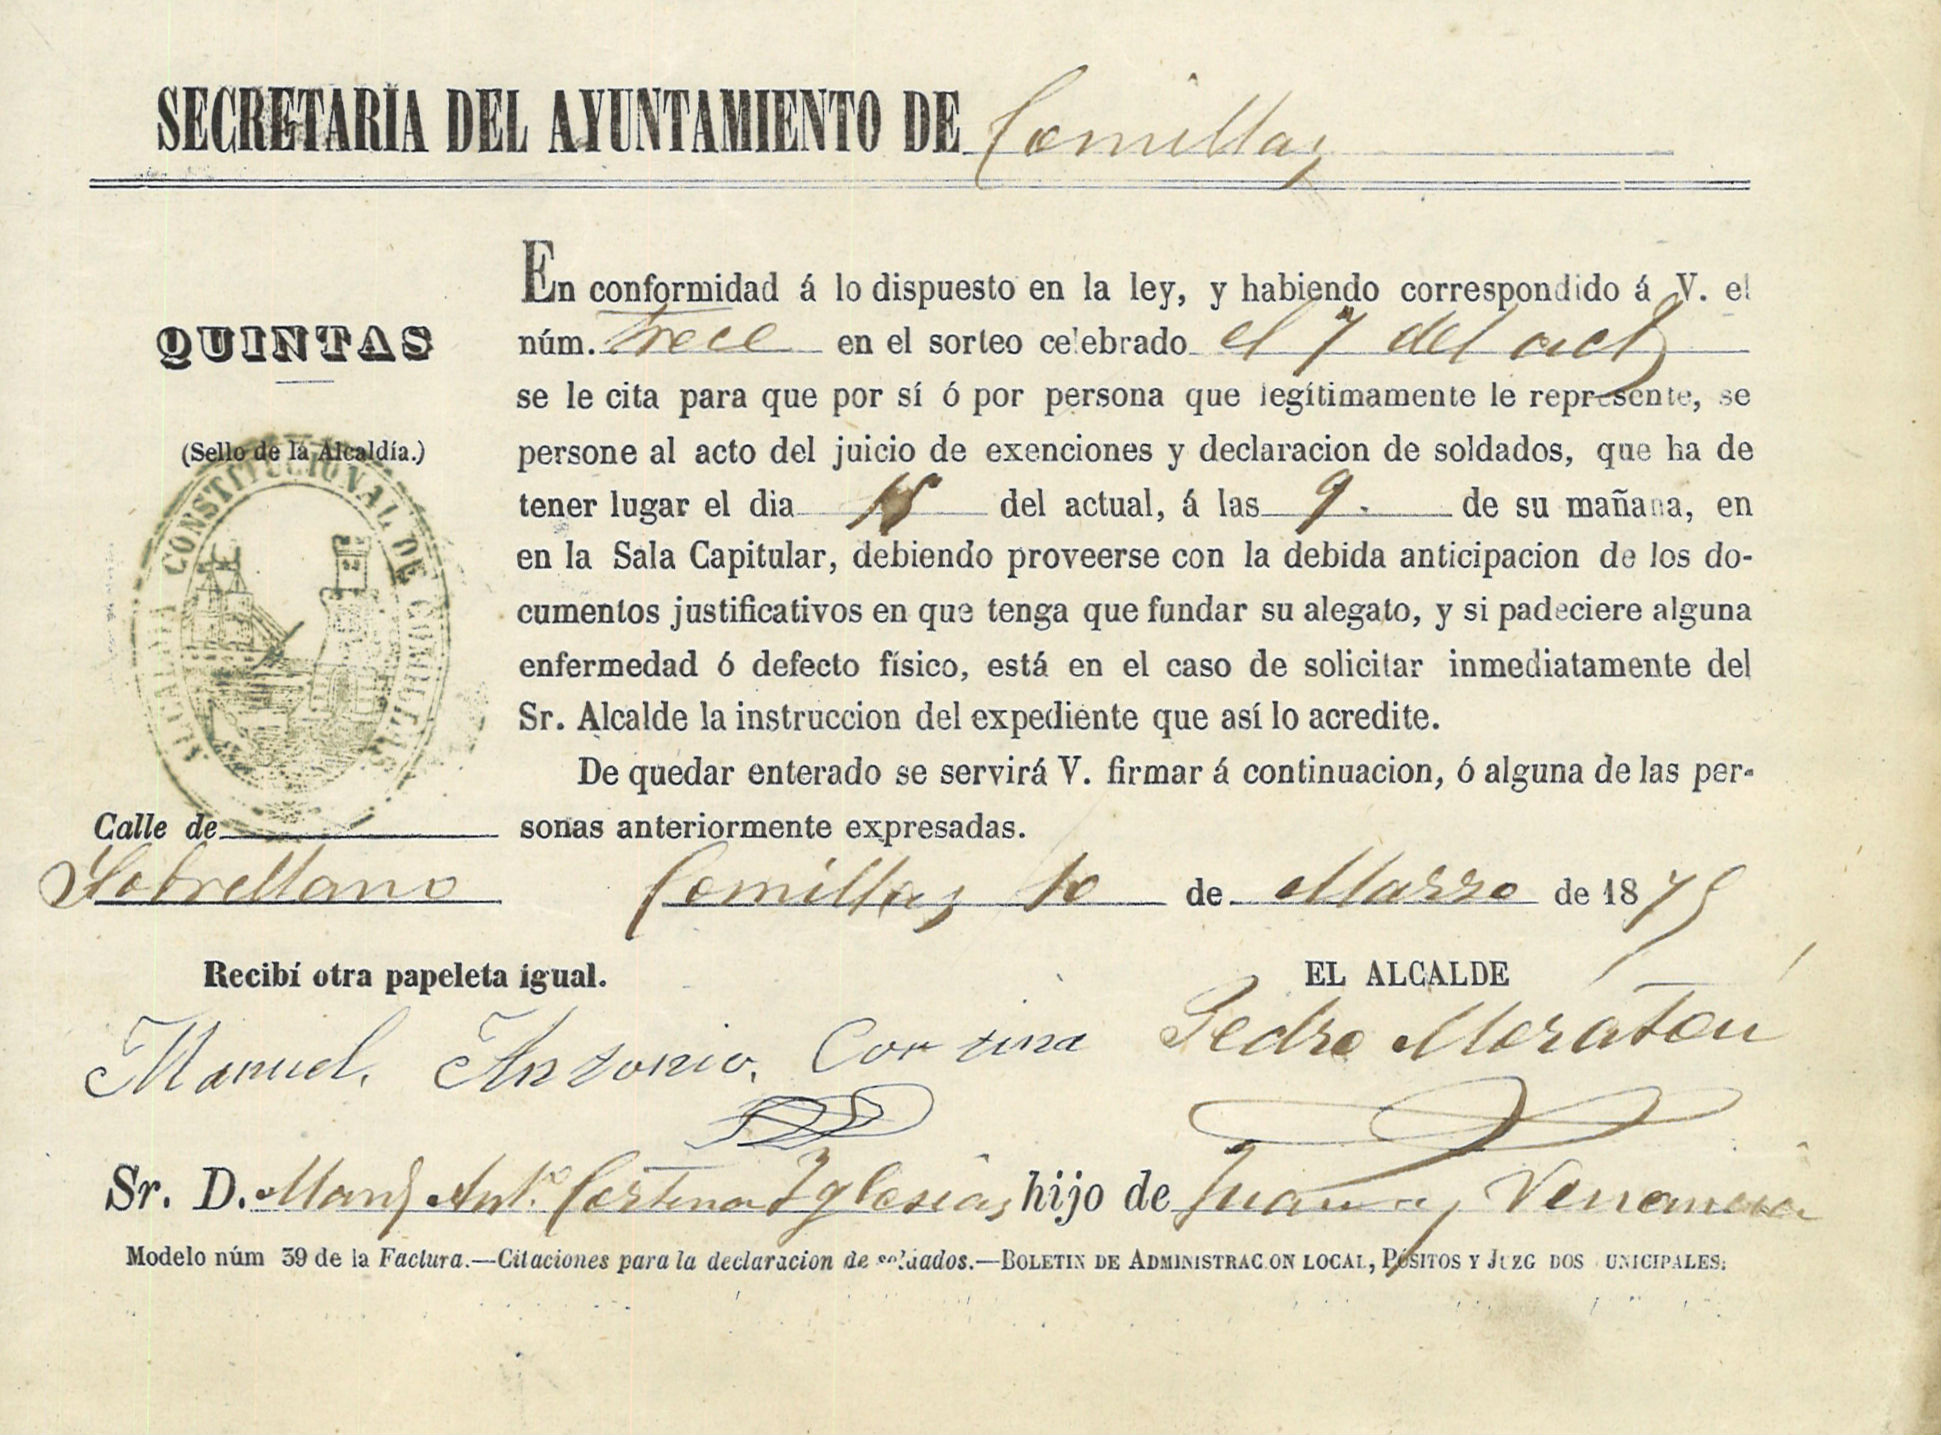 SECRETARÍA DEL AYUNTAMIENTO DE Comillas
QUINTAS
(Sello de la Alcaldía.)
ALCALDIA CONSTITUCIONAL DE COMILLAS
En conformidad á lo dispuesto en la ley, y habiendo correspondido á V. el
núm. trece en el sorteo celebrado el 7 del act
se le cita para que por sí ó por persona que legítimamente le represente, se
persone al acto del juicio de exenciones y declaracion de soldados, que ha de
tener lugar el dia del actual, á las 9. de su mañana, en
en la Sala Capitular, debiendo proveerse con la debida anticipacion de los do-
cumentos justificativos en que tenga que fundar su alegato, y si padeciere alguna
enfermedad ó defecto físico, está en el caso de solicitar inmediatamente del
Sr. Alcalde la instruccion del expediente que así lo acredite.
De quedar enterado se servirá V. firmar á continuacion, ó alguna de las per-
sonas anteriormente expresadas.
Calle de
Sobrellano
Comillas 10 de Marzo de 1875
Recibí otra papeleta igual.
EL ALCALDE
Manuel Antonio Cortina
Pedro Moratou
Sr. D. Manl Anto. Cortina Iglesias hijo de Juan y Venancia
Modelo núm 39 de la Factura.—Citaciones para la declaracion de soldados.—BOLETIN DE ADMINISTRACION LOCAL, PÓSITOS Y JUZG DOS UNICIPALES.